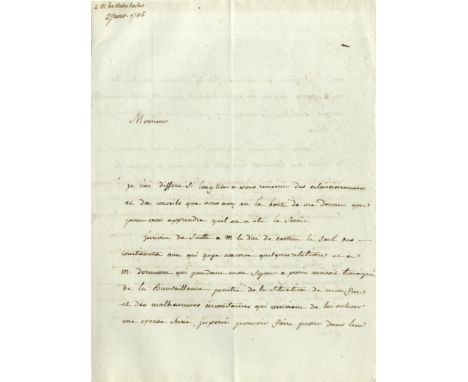 2 janv. 1786
Monsieur
je n'ai differé si longtems a vous remercier des eclaircissements
et des conseils que vous avez eu la bonté de me donner que
pour vous apprendre quel en a eté le succès
j'ecrivis de suitte a m. le duc de le seul des
courtisants avec qui j'aye conservé quelques relations et a
m. dormesson qui pendant mon sejour a paris m'avoit temoigné
de la Bienveillance, penetré de la situation de mon
et des malheureuses circonstances qui venoient de lui enlever
une epouse cherie, j'esperai pouvoir faire passer dans leur